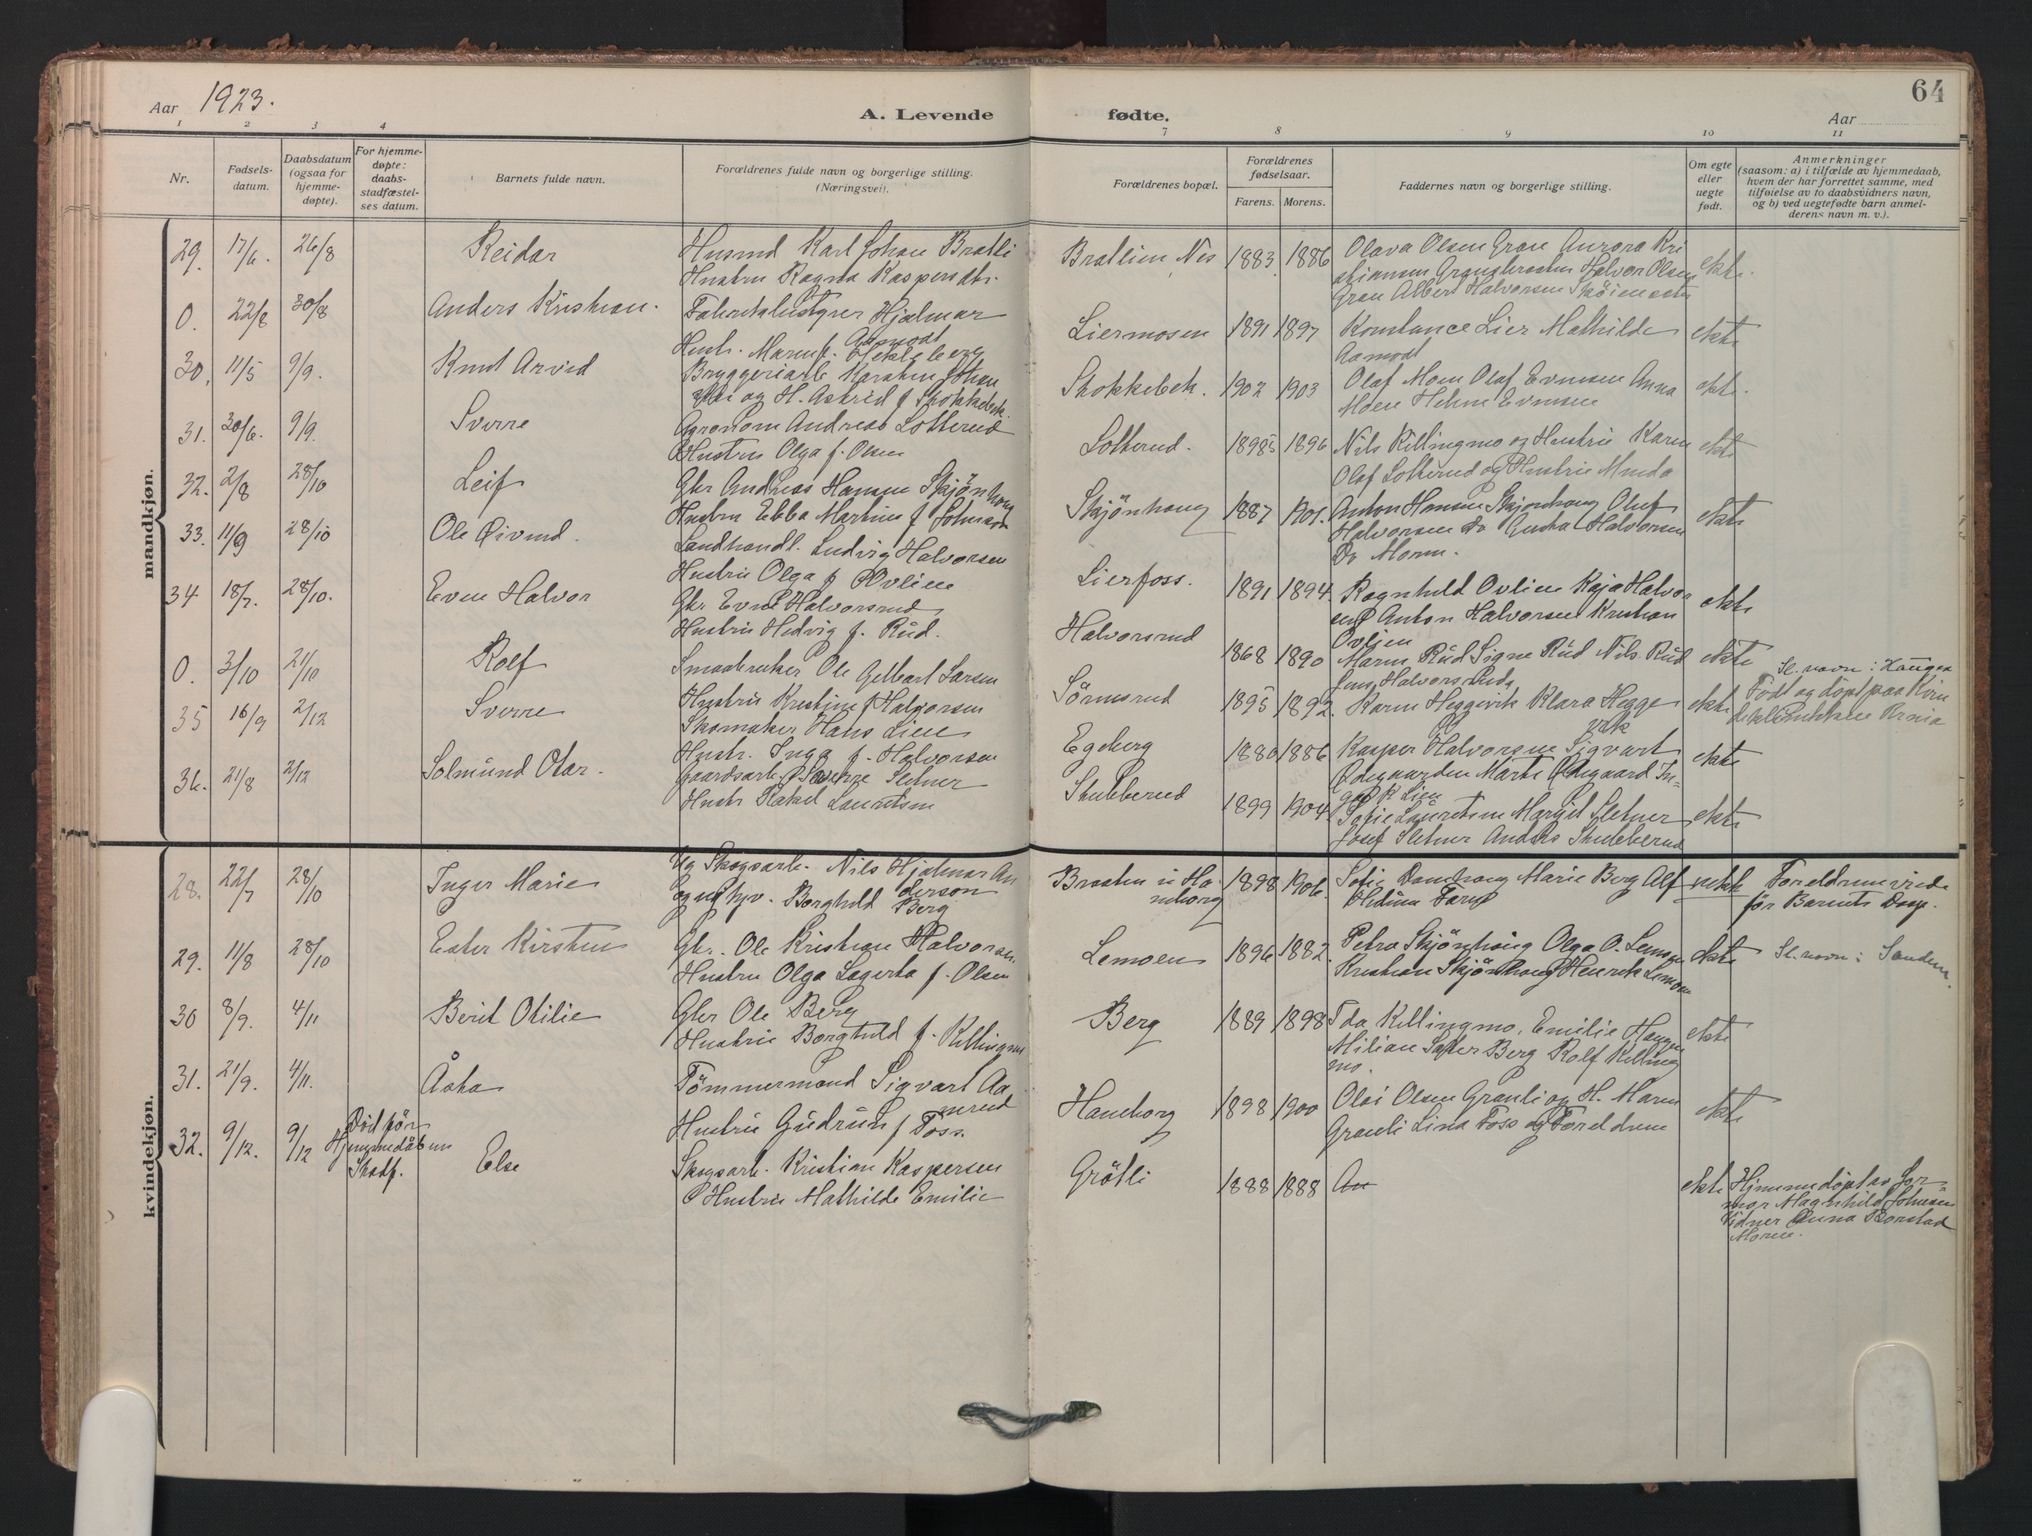 Aar 1923.
A. Levende fødte.
64
Aar
1 2 3 4
7 8 9 10 11
Nr.
Fødsels-
datum.
Daabsdatum
(ogsaa for
hjemme-
døpte).
For hjemme-
døpte:
daabs-
stadfæstel-
ses datum.
Barnets fulde navn.
Forældrenes fulde navn og borgerlige stilling.
(Næringsvei).
Forældrenes bopæl.
Forældrenes
fødselsaar.
Farens. Morens.
Faddernes navn og borgerlige stilling.
Om egte
eller
uegte
født.
Anmerkninger
(saasom: a) i tilfælde av hjemmedaab,
hvem der har forrettet samme, med
tilføielse av to daabsvidners navn,
og b) ved uegtefødte barn anmel-
derens navn m. v.).
mandkjøn.
29. 17/6. 26/8 Reidar
Husmd Karl Johan Bratli
Hustru Ragna Kaspersdtr.
Bratlien Nes 1883 1886
Olava Olsen Gran Aurora Kri
stiansen Grangbraaten Halvor Olsen
Gran Albert Halvorsen Skøienseter
ekte.
0. 22/8 30/8 Anders Kristian.
Fabrikbestyrer Hjalmar
Aamodt
Hustr. Maren f. Hekleberg
Liermosen 1891 1897
Konstance Lier Mathilde
Aamodt
ekte
30. 11/5 9/9. Knut Arvid
Bryggeriarb Karsten Johan
og H. Astrid f Stokkebek.
Stokkebek. 1902 1903
Olaf Moen Olaf Evensen Anna
Moen Helene Evensen
ekte.
31. 30/6. 9/9. Sverre
Agronom Andreas Lotterud
Hustru Olga f. Olsen
Lotterud. 1895 1896
Nils Killingmo og Hustru Karen
Olaf Lotterud og Hustru Minda
ekte
32. 2/8 28/10 Leif
Gbr Andreas Hansen Skjønhaug
Hustru Ebba Martine f Johnson
Skjönhaug 1887 1901.
Anton Hansen Skjønhaug Oluf
Halvorsen Do Halvorsen
Do Moren.
ekte
33. 11/9 28/10 Ole Øivind.
Landhandl. Ludvig Halvorsen
Hustru Olga f Ovlien
Lierfoss. 1891 1894
Ragnhild Ovlien Kaja Halvor
sen Anton Halvorsen Kristian
Ovlien
ekte
34 18/7. 28/10. Even Halvor
Gbr Even Halvorsrud
Hustru Hedvig f. Rud.
Halvorsrud 1868 1890
Maren Rud Signe Rud Nils Rud
Jens Halvorsrud
ekte
0. 3/10 21/10 Rolf
Smaabruker Ole Gelbart Larsen
Hustru Kristine f Halvorsen
Sörmsrud 1895 1892.
Karen Heggevik Klara Hegge
vik
ekte
Sl. navn: Haugen
Født og døpt paa Kvin
deklinikken Kr.nia
35 16/9 2/12 Sverre
Skomaker Hans Lien
Hustr. Inga f. Halvorsen
Egeberg 1880 1886
Kasper Halvorsen Sigvart
Ødegaarden Marte Ødegaard In-
K Lien
ekte
36. 21/8 2/12 Solmund Otar.
Gaardsarb. Sverre Sletner
Hustr Rakel Lauritsen
Stubberud 1899 1904
Sofie Lauritsen Margit Sletner
Josef Sletner Anders Stubberud
ekte
kvindekjøn.
28. 22/7 28/10 Inger Marie
Ug Skogsarb. Nils Hjalmar An
derson
og ug tjp. Borghild Berg
Braaten i Ha
neborg 1898 1906.
Sofie Marie Berg Alf
uekte
Foreldrene viede
før Barnets Daap.
29. 11/8 28/10 Ester Kirsten
Gbr. Ole Kristian Halvorsen
Hustru Olga Lagerta f. Olsen
Lemoen 1896 1882.
Petra Skjönhaug Olga O. Lemoen
Kristian Skjönhaug Henrik Lemoen
ekte
Sl. navn: Sandem.
30 8/9. 4/11 Berit Otilie
Gbr Ole Berg
Hustru Borghild f. Killingmo
Berg 1889 1898
Ida Killingmo. Emilie Haugen
Milian Berg Rolf Killing
mo.
ekte
31. 21/9. 4/11. Åsta
Tömmermand Sigvart Aa
nerud
Hustru Gudrun f Foss.
Haneborg 1898 1900
Olai Olsen Granli og H. Maren
Granli Lina Foss og Foreldrene
ekte
32. 9/12. 9/12 Död för
Hjemmedåben
Stadf.
Else
Skogsarb. Kristian Kaspersen
Hustru Mathilde Emilie
Grötli 1888 1888
ekte
Hjemmedöpt av Jor-
mor Magnhild Johnsen
Vidner Anna Borstad
Moren.